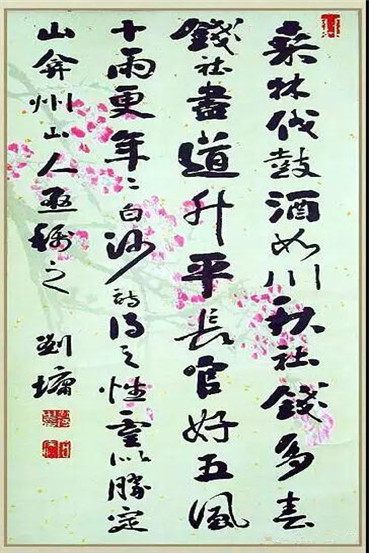 桑林伐鼓酒如川秋社錢多春
錢社盡道升平長官好五風
十雨更年〻白沙詩得之性靈以勝定
山弇州山人亟稱之
劉墉